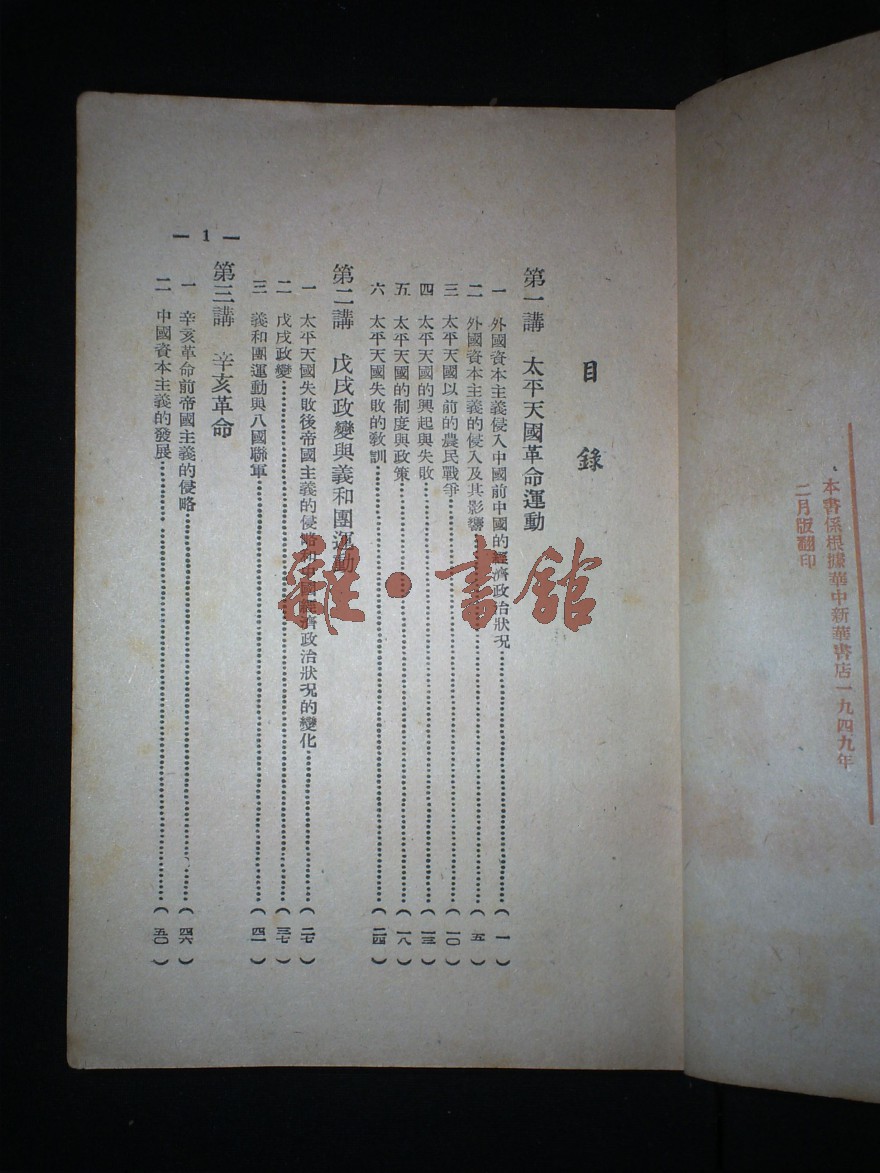 本書係根據華中新華書店一九四九年
二月版翻印
目錄
第一講 太平天國革命運動
一 外國資本主義侵入中國前中國的經濟政治狀況………(一)
二 外國資本主義的侵入及其影響………(五)
三 太平天國以前的農民戰爭………(一〇)
四 太平天國的興起與失敗………(一三)
五 太平天國的制度與政策………(一八)
六 太平天國失敗的教訓………(二四)
第二講 戊戌政變與義和團運動
一 太平天國失敗後帝國主義的侵略和中國經濟政治狀況的變化………(二七)
二 戊戌政變………(三七)
三 義和團運動與八國聯軍………(四一)
第三講 辛亥革命
一 辛亥革命前帝國主義的侵略………(四六)
二 中國資本主義的發展………(五〇)
— 1 —
雜·書館